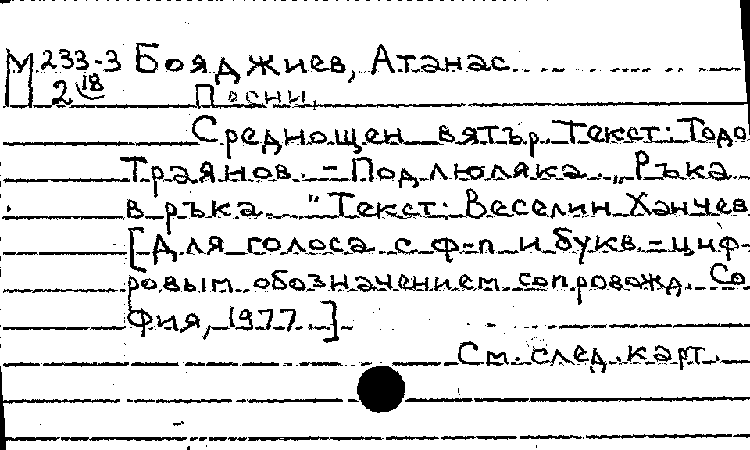 М 233-3 Бояджиев, Атанас
2 18 Песни.
Среднощен вятър Текст: Тодо
Траянов. - Под люляка. „Ръка
в ръка." Текст: Веселин Ханчев
[Для голоса с ф-п и букв.-циф-
ровым обозначением сопровожд. Со
фия, 1977.]
См. след. карт.